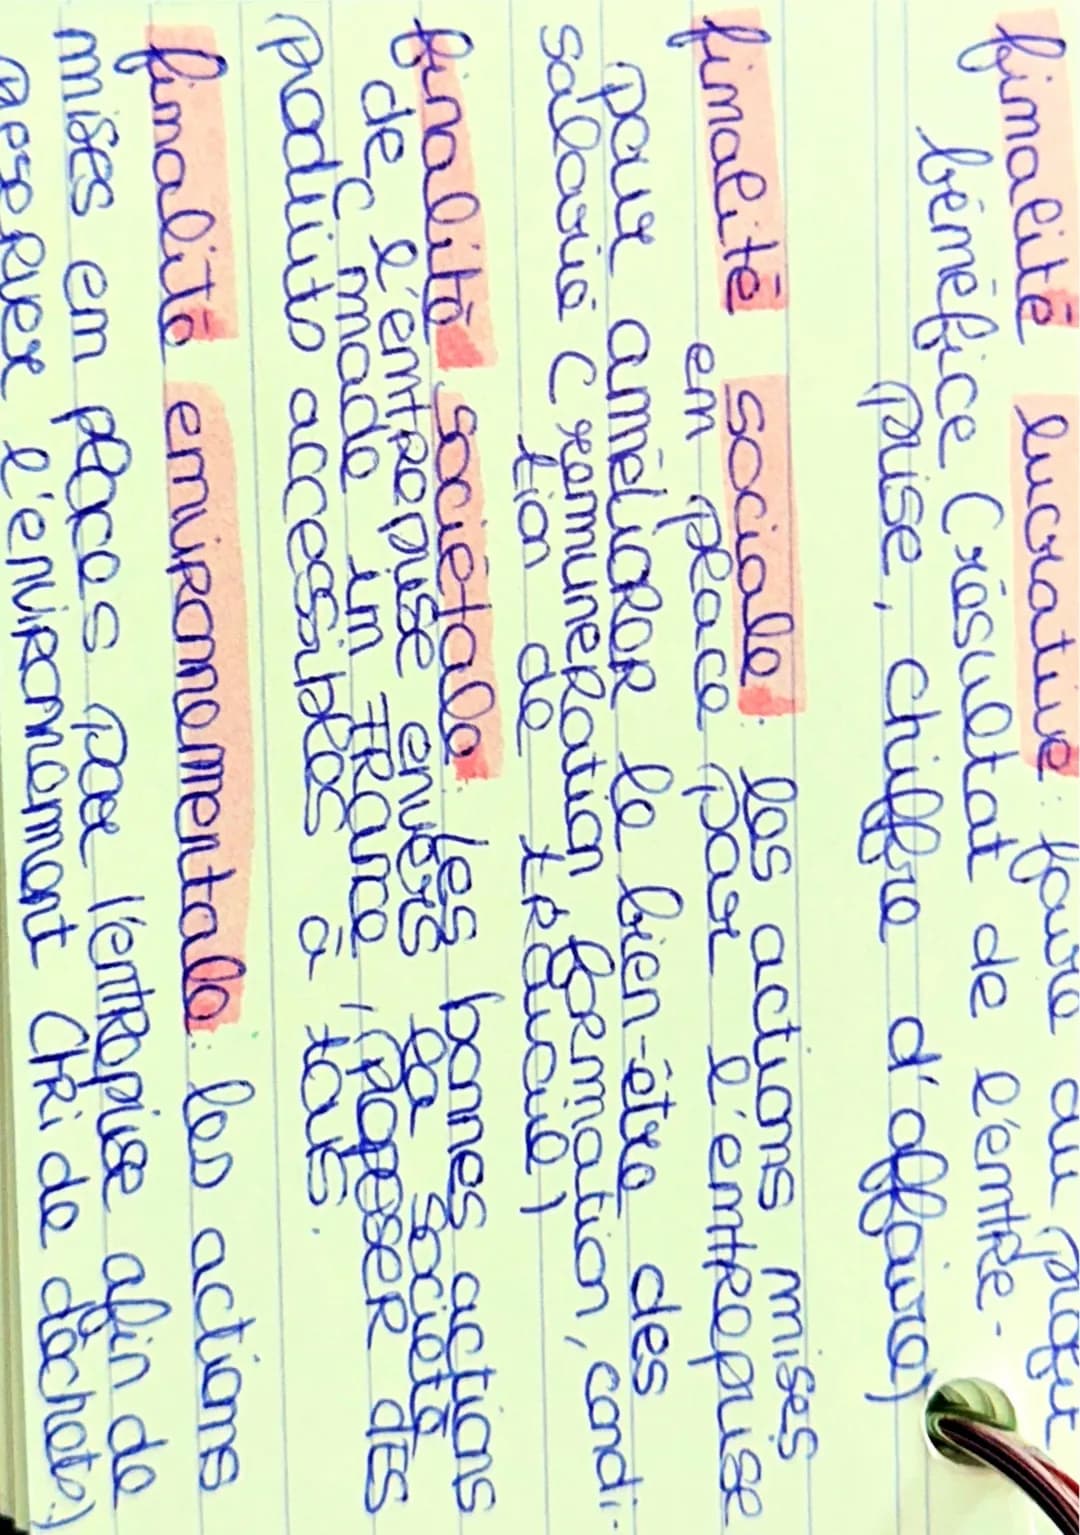 finalité lucrative : faire du profit
bénéfice (résultat de l'entre-
prise, chiffre d'affaire)
finalité sociale : les actions mises
en place par l'entreprise
pour améliorer le bien-être des
salarié (rémunération formation, condi-
tion de travail)
finalité sociétale : les bonnes actions
de l'entreprise envers sa société
( made in France, proposer des
produits accessibles à tous.
finalité environnementale : les actions
mises en places par l'entreprise afin de
preserver l'environnement (tri de déchets)